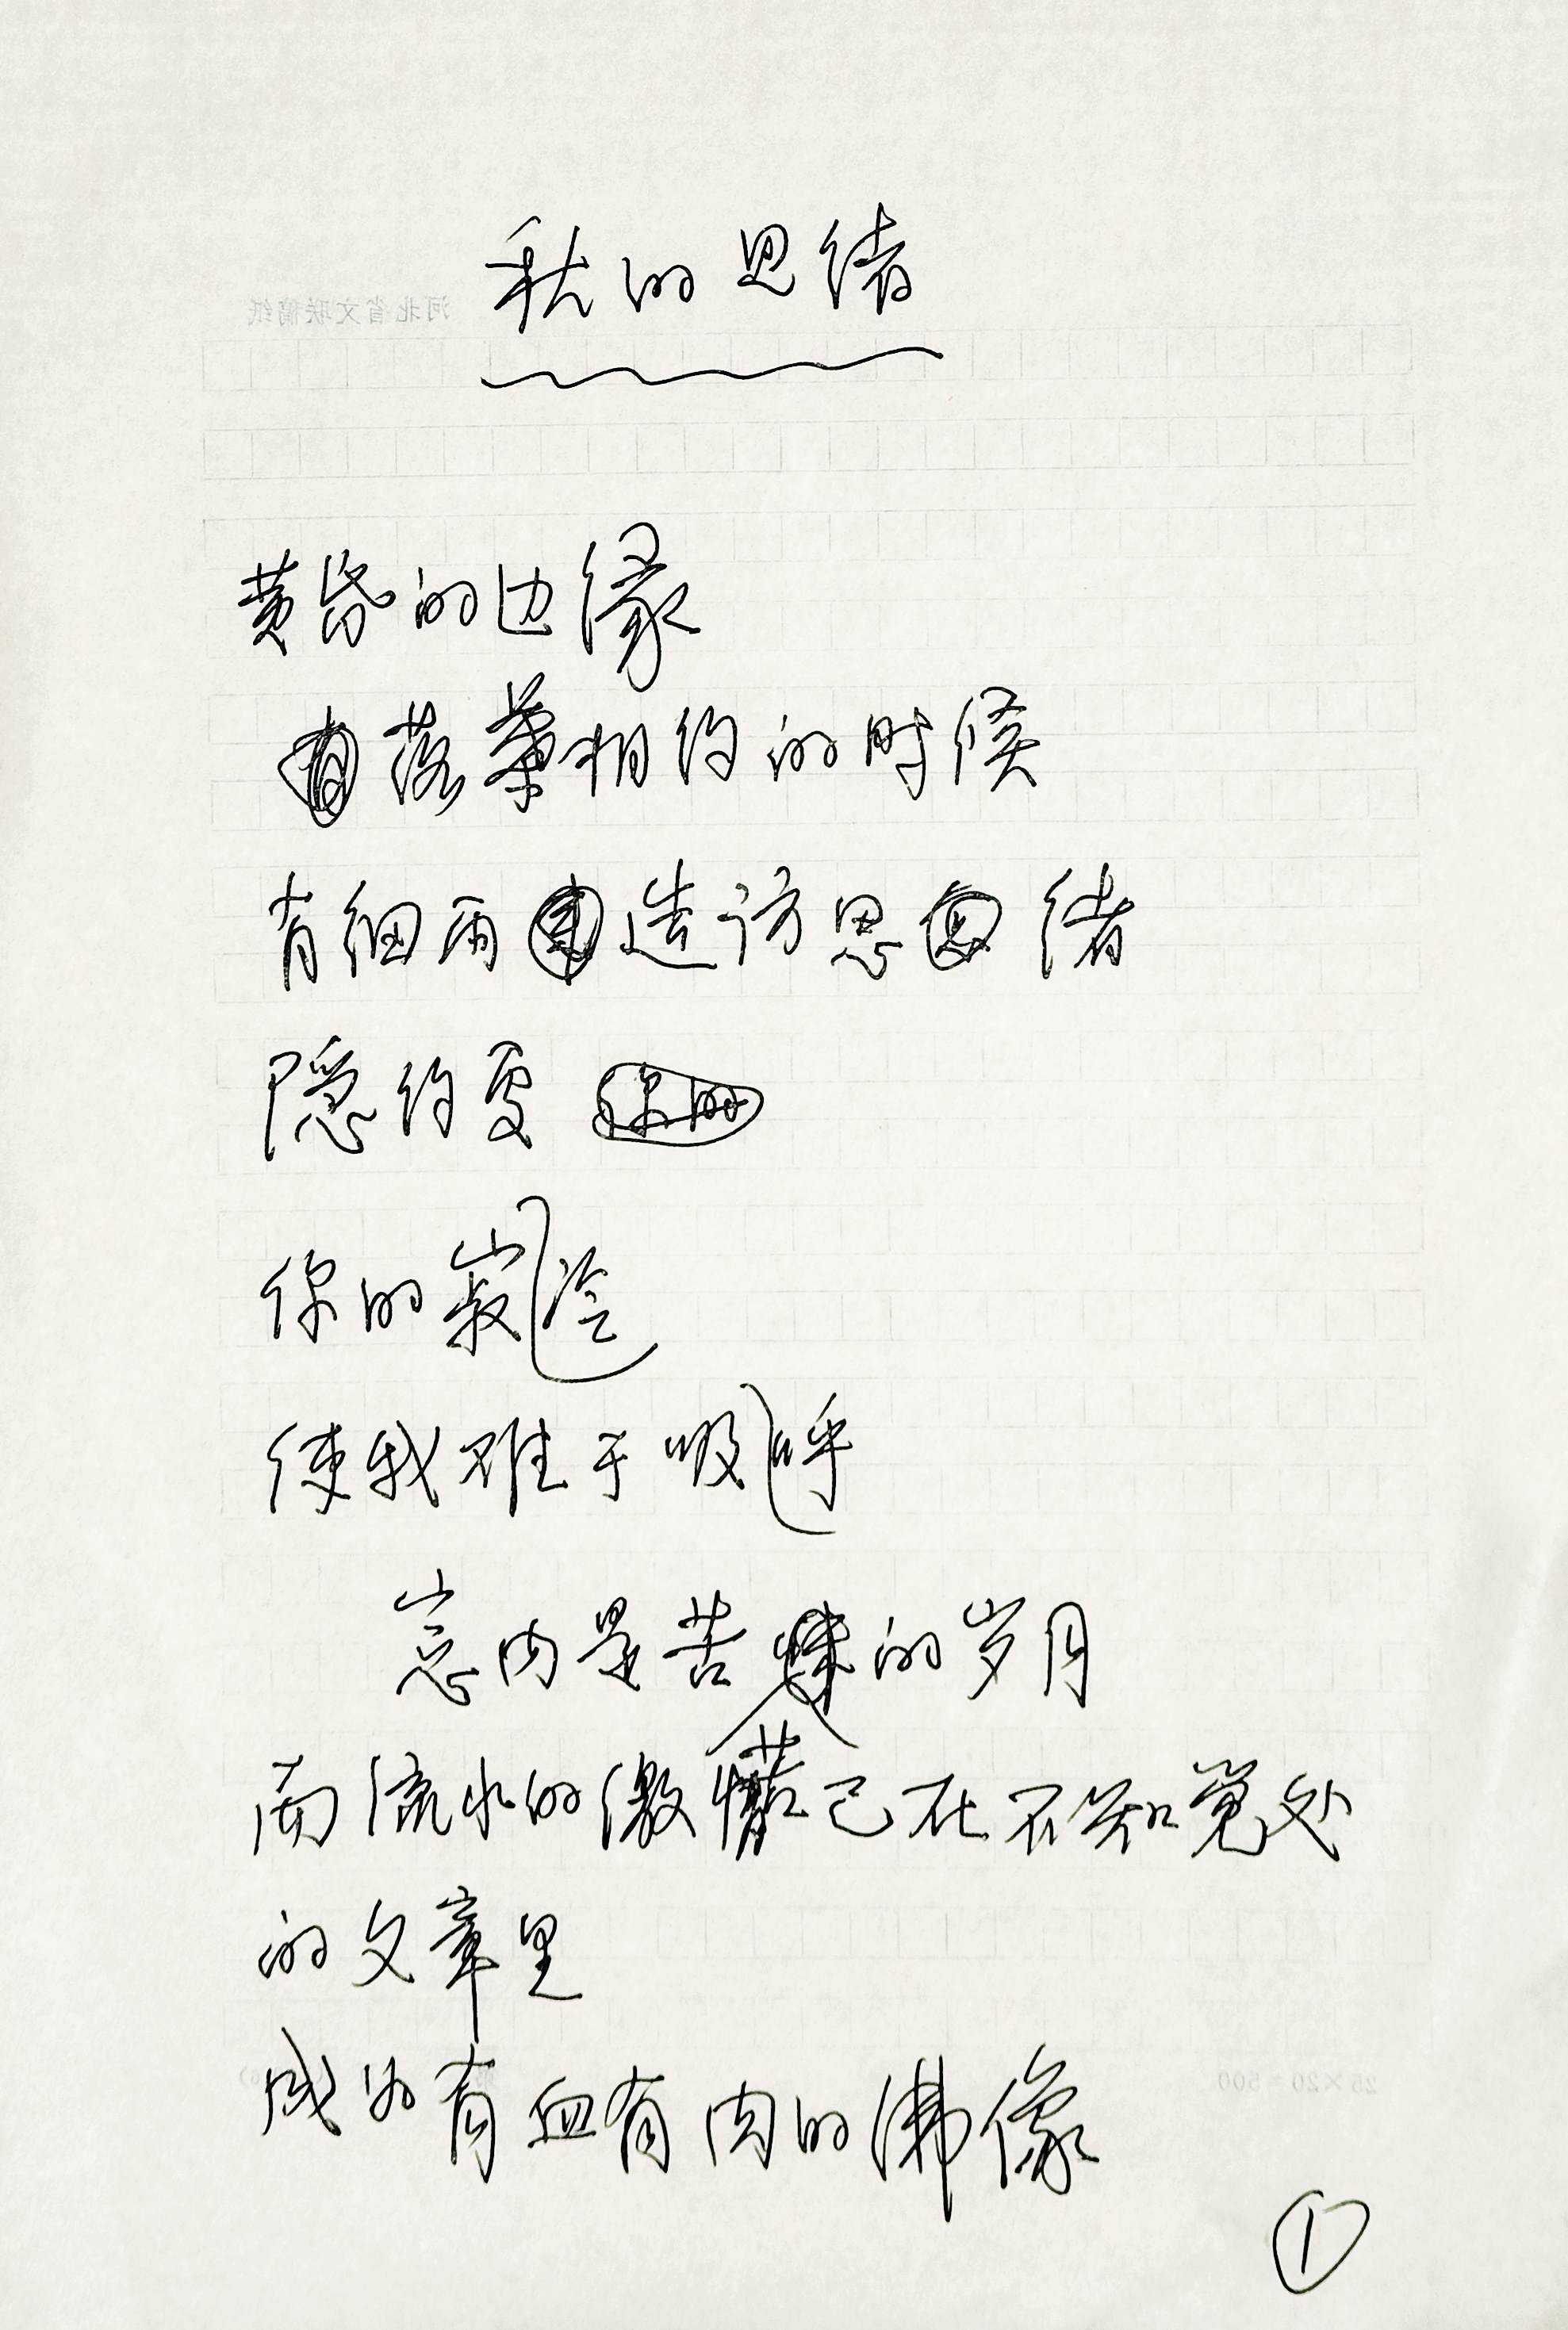 秋的思绪
河北省文联稿纸
黄昏的边缘
落叶相约的时候
有细雨造访思绪
隐约
你的寂冷
使我难于吸呼
窗内是苦的岁月
而流水的激已在不知觉处
的文章里
成为有血有肉的佛像
25×20=500
①